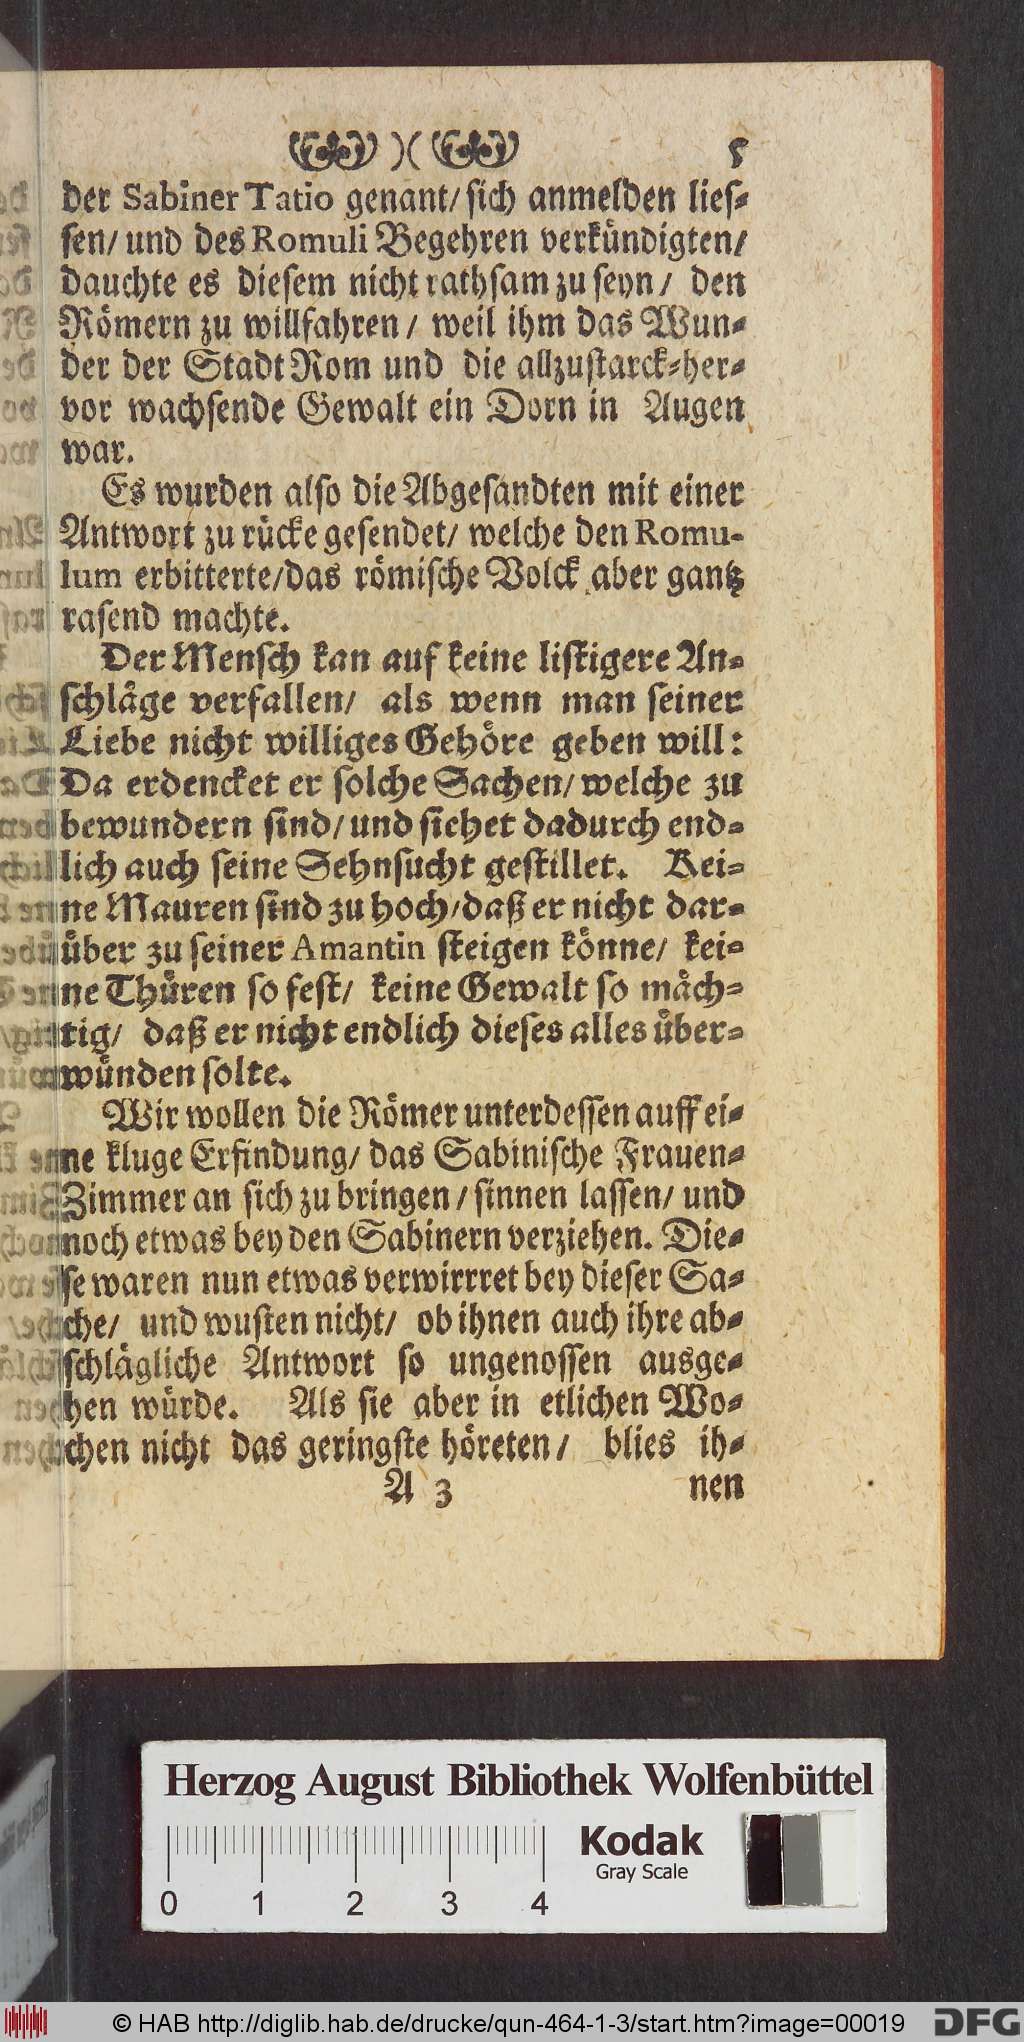 )( 5
der Sabiner Tatio genant/ sich anmelden lies-
sen/ und des Romuli Begehren verkündigten/
dauchte es diesem nicht rathsam zu seyn/ den
Römern zu willfahren/ weil ihm das Wun-
der der Stadt Rom und die allzustarck-her-
vor wachsende Gewalt ein Dorn in Augen
war.
Es wurden also die Abgesandten mit einer
Antwort zu rücke gesendet/ welche den Romu-
lum erbitterte/das römische Volck aber gantz
rasend machte.
Der Mensch kan auf keine listigere An-
schläge verfallen/ als wenn man seiner
Liebe nicht williges Gehöre geben will:
Da erdencket er solche Sachen/ welche zu
bewundern sind/ und siehet dadurch end-
lich auch seine Sehnsucht gestillet. Kei-
ne Mauren sind zu hoch/daß er nicht dar-
über zu seiner Amantin steigen könne/ kei-
ne Thüren so fest/ keine Gewalt so mäch-
tig/ daß er nicht endlich dieses alles über-
wünden solte.
Wir wollen die Römer unterdessen auff ei-
ne kluge Erfindung/ das Sabinische Frauen-
Zimmer an sich zu bringen/ sinnen lassen/ und
noch etwas bey den Sabinern verziehen. Die-
se waren nun etwas verwirrret bey dieser Sa-
che/ und wusten nicht/ ob ihnen auch ihre ab-
schlägliche Antwort so ungenossen ausge-
hen würde. Als sie aber in etlichen Wo-
chen nicht das geringste höreten/ blies ih-
A 3 nen
Herzog August Bibliothek Wolfenbüttel
Kodak
Gray Scale
0 1 2 3 4
© HAB http://diglib.hab.de/drucke/qun-464-1-3/start.htm?image=00019
DFG